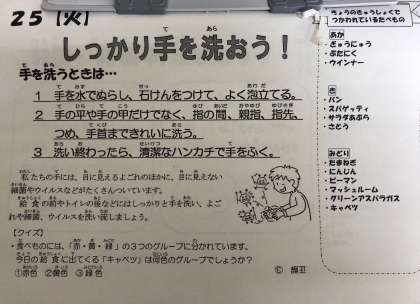 25【火】
しっかり手を洗おう！
手を洗うときは…
1 手を水でぬらし、石けんをつけて、よく泡立てる。
2 手の平や手の甲だけでなく、指の間、親指、指先、
つめ、手首まできれいに洗う。
3 洗い終わったら、清潔なハンカチで手をふく。
私たちの手には、目に見えるよごれのほかに、目に見えない
細菌やウイルスなどがたくさんついています。
給食の前やトイレの後などにはしっかりと手を洗い、よご
れや細菌、ウイルスを洗い流しましょう。
【クイズ】
・食べものには、「赤・黄・緑」の3つのグループに分かれています。
今日の給食に出てくる「キャベツ」は何色のグループでしょうか？
①赤色 ②黄色 ③緑色
©
きょうのきゅうしょくで
つかわれているたべもの
あか
・ぎゅうにゅう
・ぶたにく
・ウインナー
き
・パン
・スパゲッティ
・サラダあぶら
・さとう
みどり
・たまねぎ
・にんじん
・ピーマン
・マッシュルーム
・グリーンアスパラガス
・キャベツ